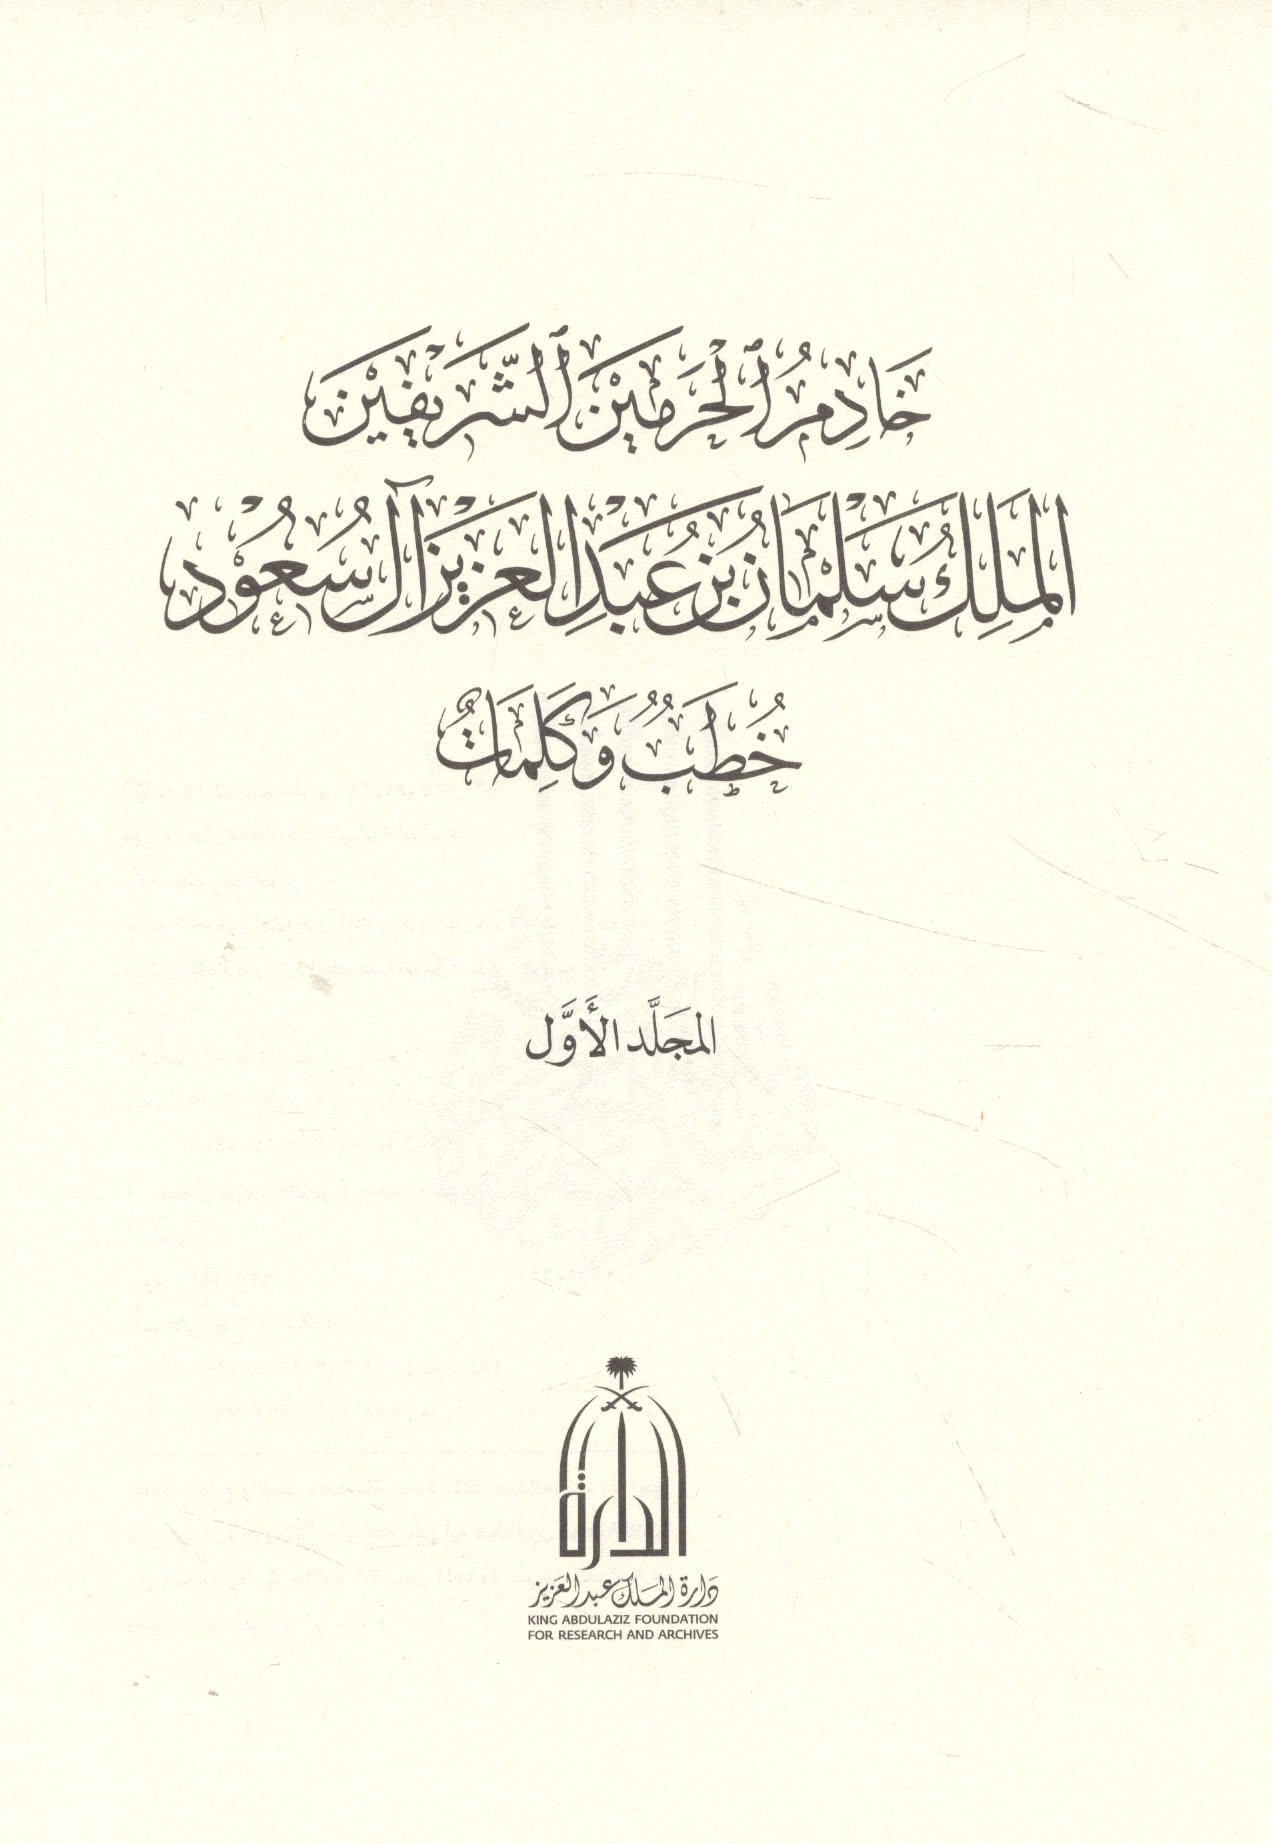 خَادِمُ ٱلْحَرَمَيْنِ ٱلشَّرِيفَيْنِ
المَلِكُ سَلْمَانُ بْنُ عَبْدِ العَزِيْزِ آلُ سُعُوْدٍ
خُطَبٌ وَكَلِمَاتٌ
المجَلَّد الأَوَّل
الدارة
دارة الملك عبدالعزيز
KING ABDULAZIZ FOUNDATION
FOR RESEARCH AND ARCHIVES